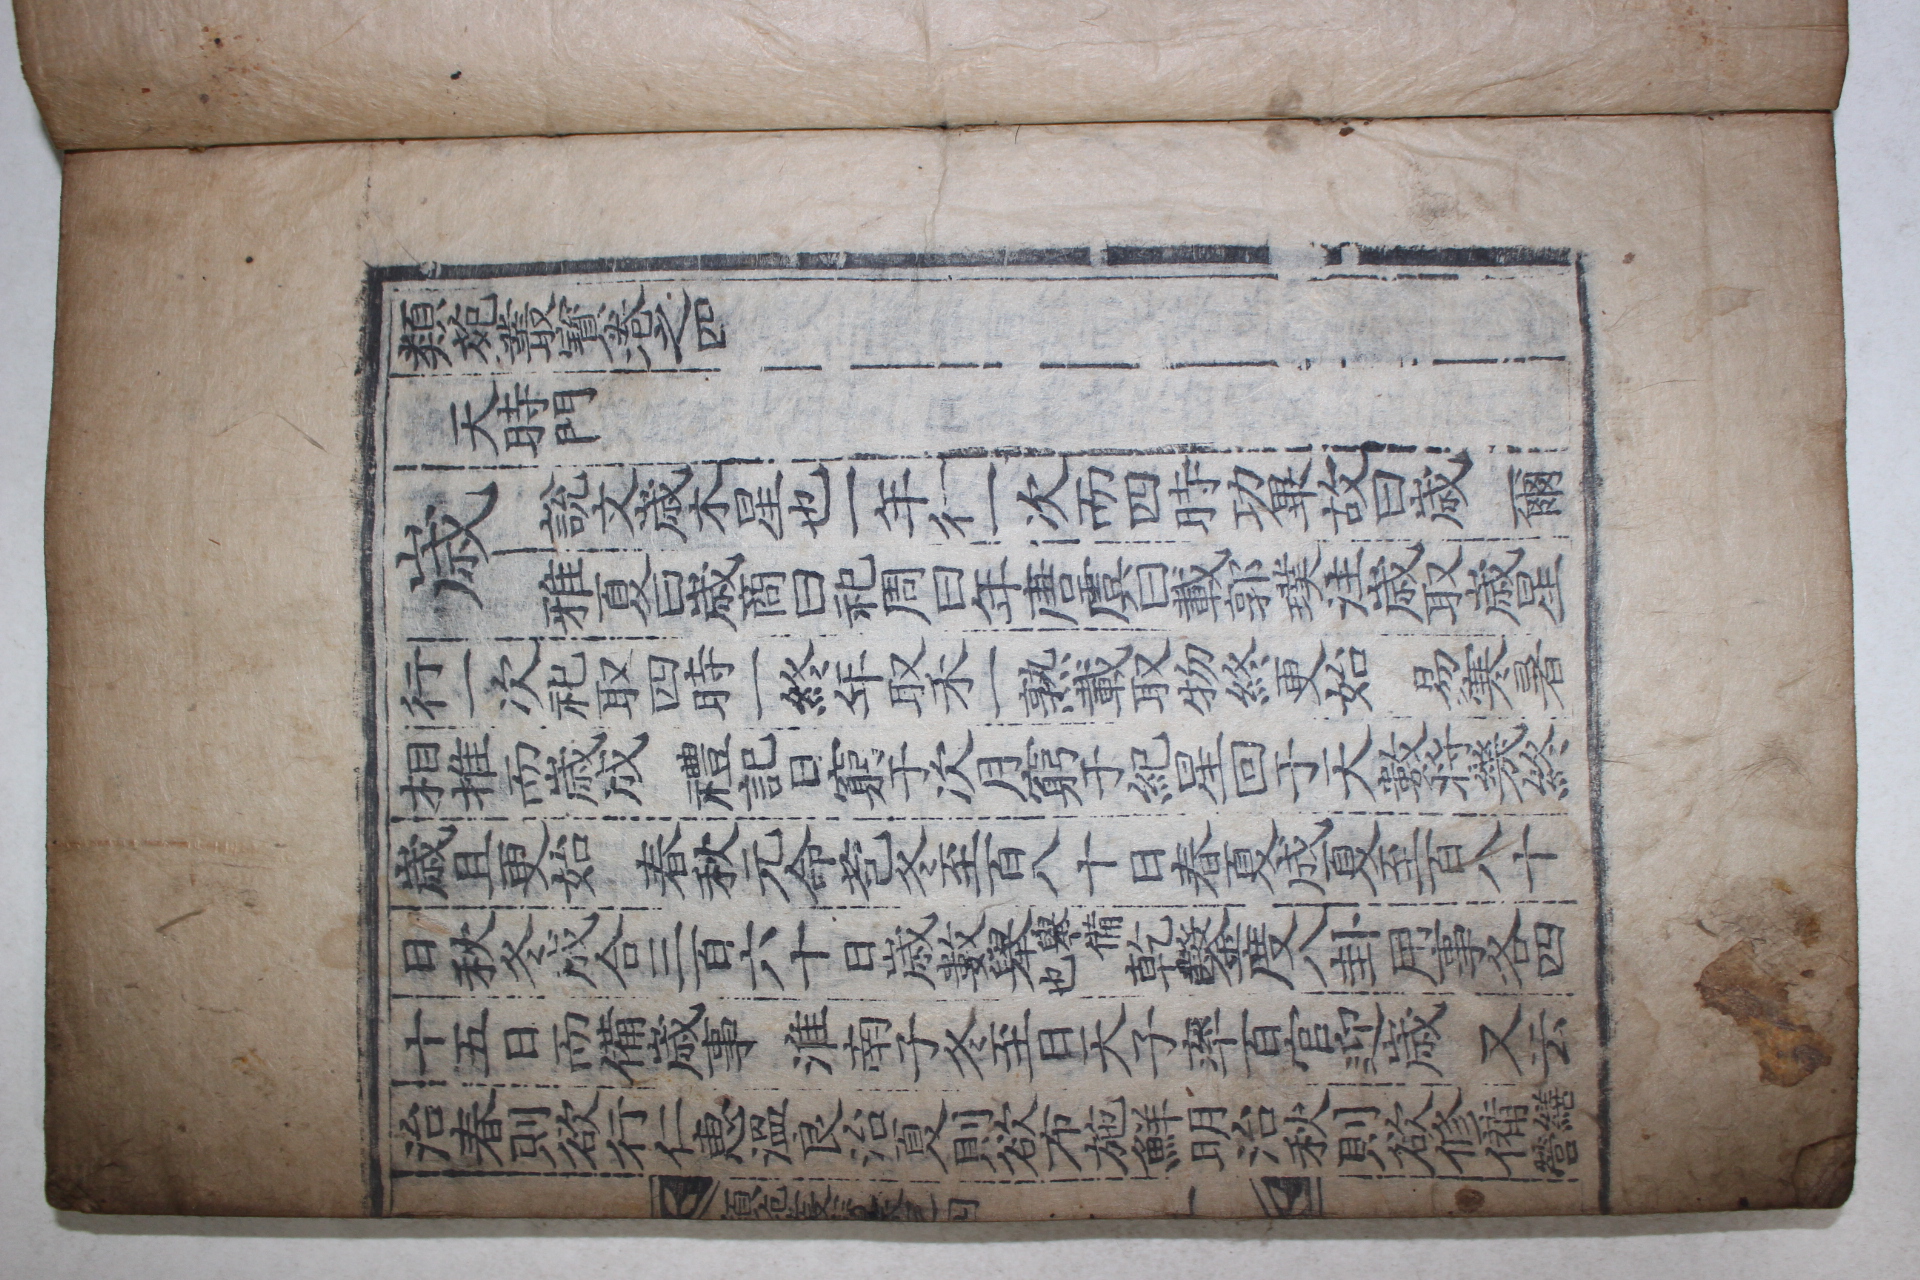 類苑叢寶卷之四
天時門
歲
說文歲木星也一年行一次而四時功畢故曰歲　爾
雅夏曰歲商曰祀周曰年唐虞曰載郭璞注歲取歲星
行一次祀取四時一終年取禾一熟載取物終更始　易寒暑
相推而歲成　禮記日窮于次月窮于紀星回于天數將幾終
歲且更始　春秋元命苞冬至百八十日春夏成夏至百八十
日秋冬成合三百六十日歲數舉舉備也乾鑿度八卦用事各四
十五日而備歲事　淮南子冬至日天子率百官迎歲　又云
治春則欲行仁惠溫良治夏則欲布施鮮明治秋則欲修備繕營
類苑叢寶卷之四
一